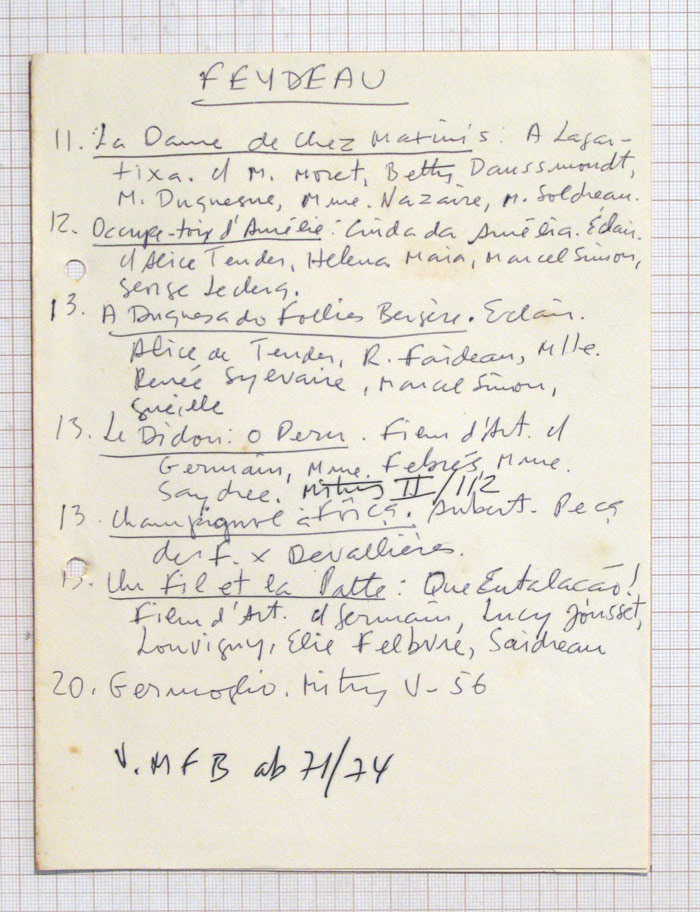 FEYDEAU
11. La Dame de chez Maxim's: A Lagar-
tixa. d M. Moret, Betty Daussmondt,
M. Duquesne, Mme. Nazaire, M. Soldreau.
12. Occupe-toi d'Amélie: Cuida da Amélia. Éclair.
d Alice Tender, Helena Maia, Marcel Simon,
Serge Leclerq.
13. A Duquesa do Follies Bergère. Eclair.
Alice de Tender, R. Faideau, Mlle.
Renée Sylvaire, Marcel Simon,
13. Le Didon: O Peru. Fiem d'Art. d
Germain, Mme. Febrés, Mme.
Saydree. Mitry II/112
13. Champignol à Força. Aubert. Peça
de F. x Devallières.
13. Un Fil et la Patte: Que Entalacão!
Fiem d'Art. d Germain, Lucy Jousset,
Louvigny, Elie Felbvre, Saidreau
20. Germoglio. Mitry V-56
V. MFB ab 71/74